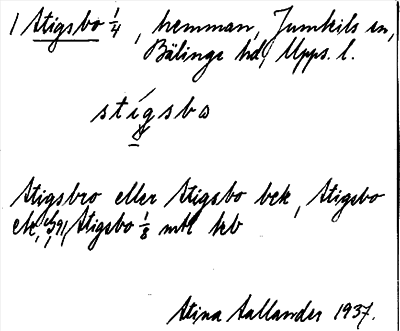 1 Stigsbo 1/4, hemman, Jumkils sn,
Bälinge hd, Upps. l.
stígsbo
Stigsbro eller Stigsbo bek, Stigsbo
ek, Stigsbo 1/8 mtl hb
Stina Sallander 1937.